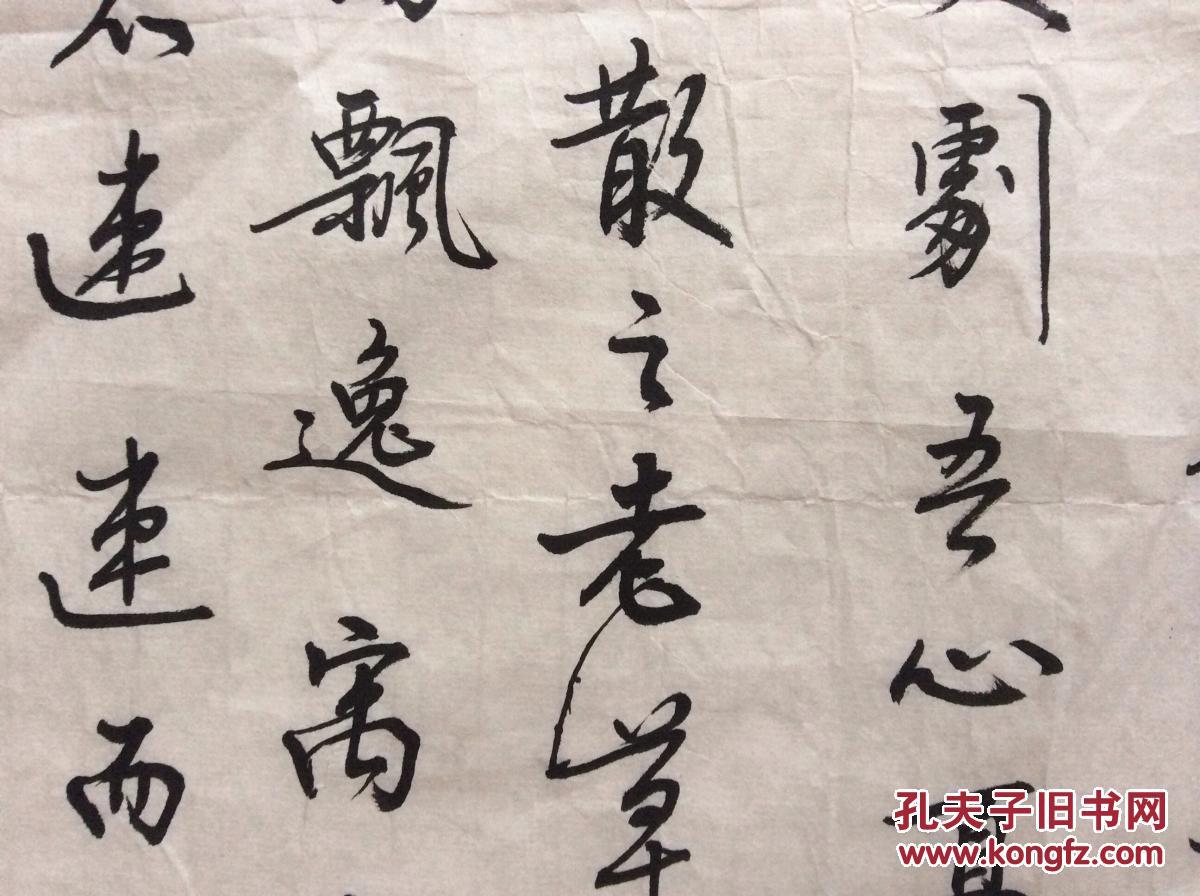 劇吾心
散之老草
飄逸寓
速速而
孔夫子旧书网
www.kongfz.com